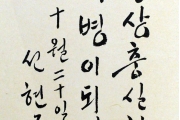 상흥신
병이되
十월二十일
선현